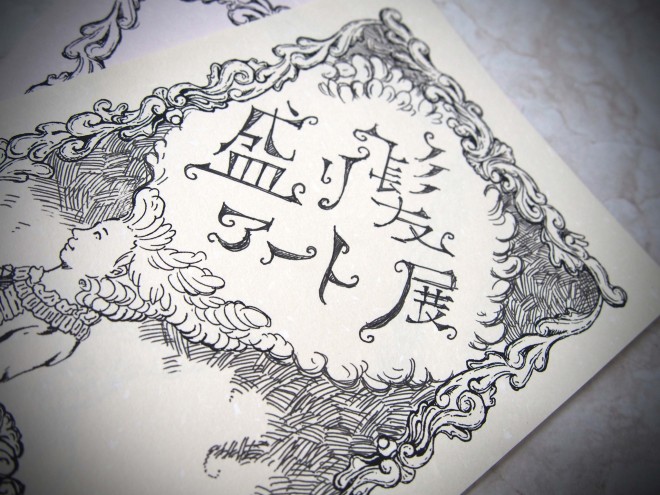 盛り髪
アート展